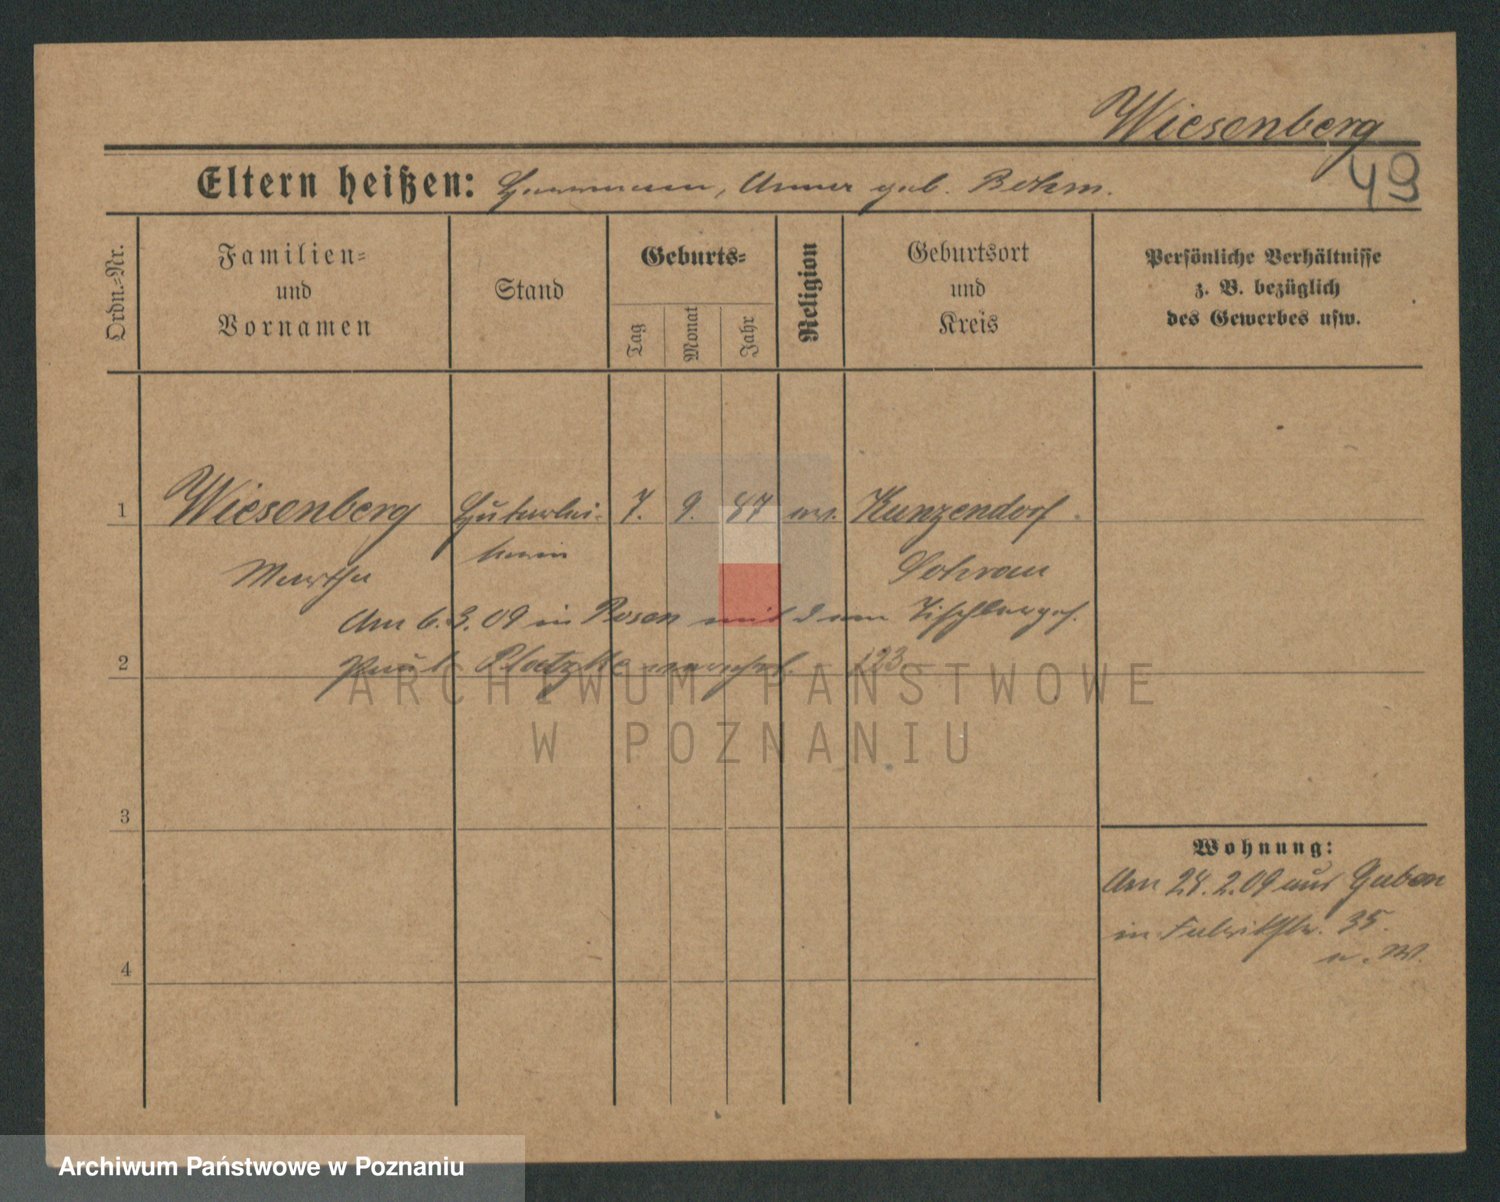 Wiesenberg
49
Eltern heißen: Herrmann, Anna geb. Böhm.
Ordn.-Nr.
Familien- und Vornamen
Stand
Geburts-
Tag
Monat
Jahr
Religion
Geburtsort und Kreis
Persönliche Verhältnisse z. B. bezüglich des Gewerbes usw.
1 Wiesenberg 7. 9. 87 ev. Kunzendorf
Martha Sohrau
Am 6.3.09 in Posen mit dem Tischlerges.
2 Paul Platzke 123
ARCHIWUM PAŃSTWOWE
W POZNANIU
3
Wohnung:
Am 24.2.09 aus Guben
in Fabrikstr. 35.
4
Archiwum Państwowe w Poznaniu